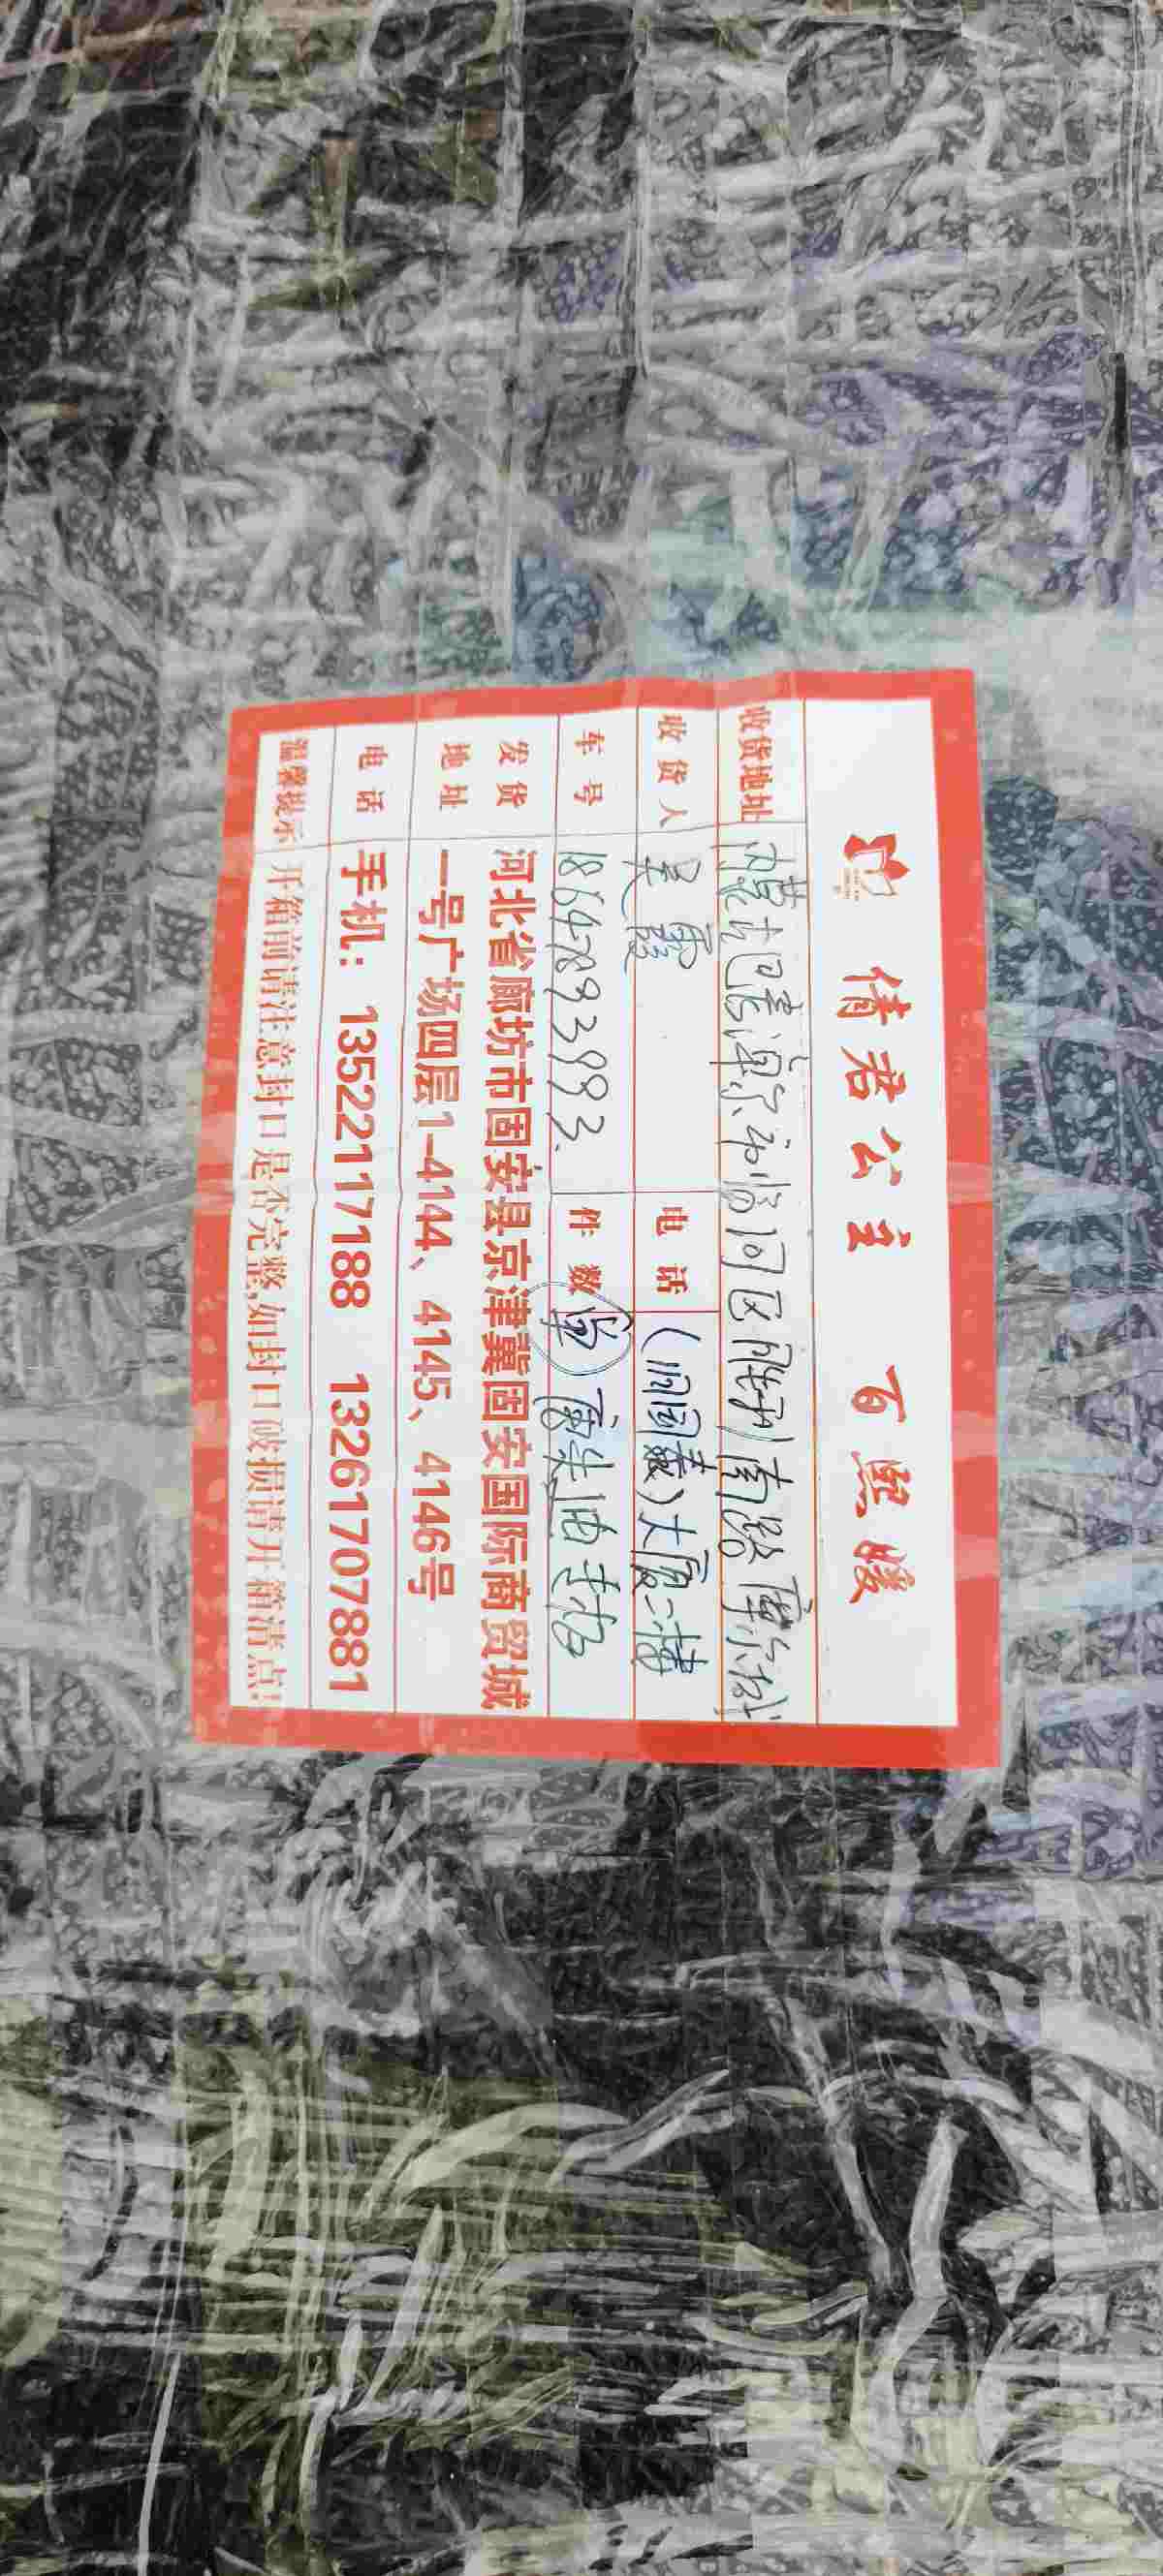 倩君公主 百熙暖
收货地址 内蒙古巴彦淖尔市临河区胜利南路摩尔城
收货人 吴霞 电话 (旧国泰)大厦二楼
车号 18647893993. 件数
发货地址 河北省廊坊市固安县京津冀固安国际商贸城
一号广场四层1-4144、4145、4146号
电话 手机：13522117188 13261707881
温馨提示 开箱前请注意封口是否完整,如封口破损请开箱清点!